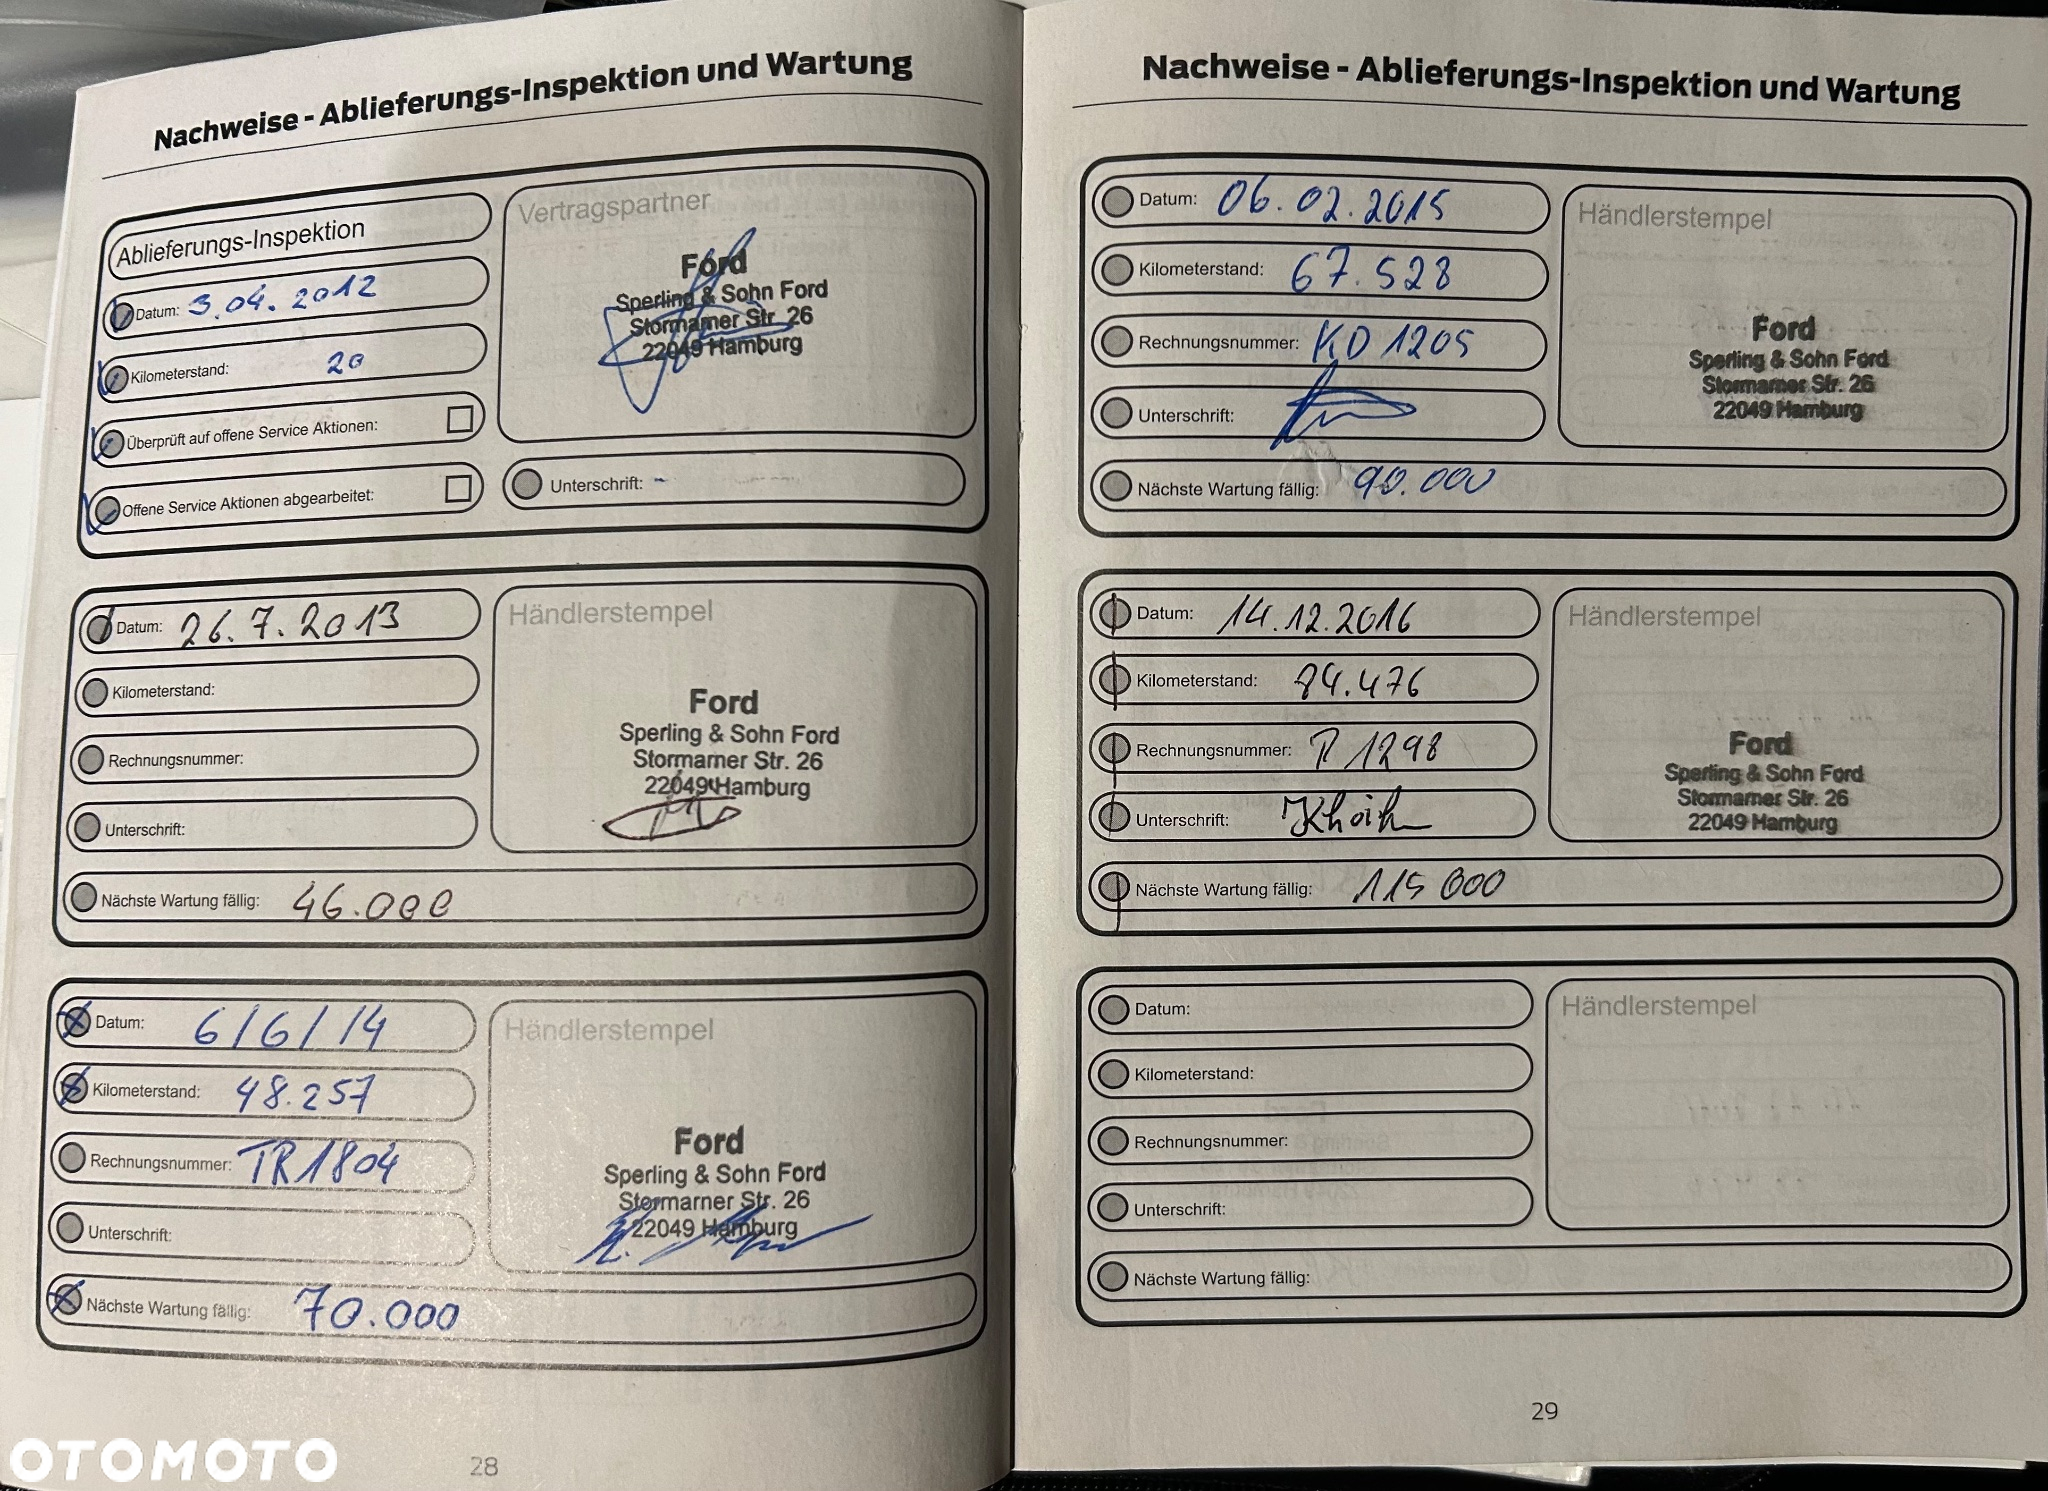 Nachweise - Ablieferungs-Inspektion und Wartung
Ablieferungs-Inspektion
Datum: 3.04.2012
Kilometerstand: 20
Überprüft auf offene Service Aktionen:
Offene Service Aktionen abgearbeitet:
Vertragspartner
Ford
Sperling & Sohn Ford
Stormarner Str. 26
22049 Hamburg
Unterschrift:
Datum: 26.7.2013
Kilometerstand:
Rechnungsnummer:
Unterschrift:
Händlerstempel
Ford
Sperling & Sohn Ford
Stormarner Str. 26
22049 Hamburg
Nächste Wartung fällig: 46.000
Datum: 6/6/14
Kilometerstand: 48.257
Rechnungsnummer: TR1804
Unterschrift:
Händlerstempel
Ford
Sperling & Sohn Ford
Stormarner Str. 26
22049 Hamburg
Nächste Wartung fällig: 70.000
28
Nachweise - Ablieferungs-Inspektion und Wartung
Datum: 06.02.2015
Kilometerstand: 67.528
Rechnungsnummer: KD 1205
Unterschrift:
Händlerstempel
Ford
Sperling & Sohn Ford
Stormarner Str. 26
22049 Hamburg
Nächste Wartung fällig: 90.000
Datum: 14.12.2016
Kilometerstand: 84.476
Rechnungsnummer: R 1298
Unterschrift:
Händlerstempel
Ford
Sperling & Sohn Ford
Stormarner Str. 26
22049 Hamburg
Nächste Wartung fällig: 115 000
Datum:
Kilometerstand:
Rechnungsnummer:
Unterschrift:
Händlerstempel
Nächste Wartung fällig:
29
OTOMOTO